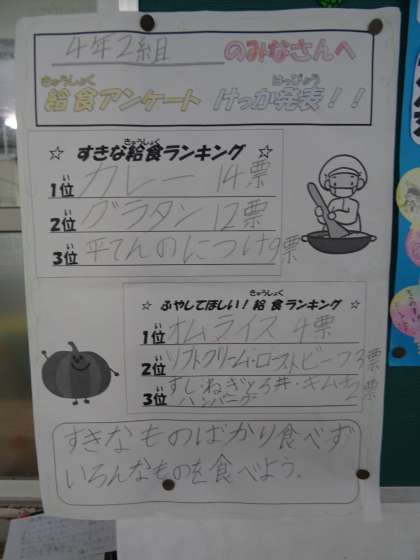 4年2組 のみなさんへ
給食アンケート けっか発表!!
☆ すきな給食ランキング ☆
1位 カレー 14票
2位 グラタン 12票
3位 平てんのにつけ 9票
★ ふやしてほしい!給食ランキング ★
1位 オムライス 4票
2位 ソフトクリーム・ローストビーフ 3票
3位 すし・ねぎとろ丼・キムチ
ハンバーグ 2票
すきなものばかり食べず
いろんなものを食べよう.